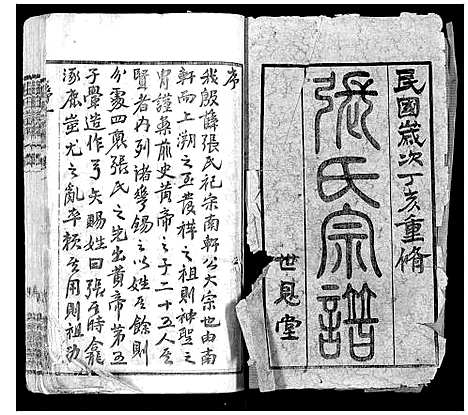 民國歲次丁亥重脩
張氏宗譜
世恩堂
序
我殷薛張氏祀宗南軒公大宗也由南
軒而上溯之至發祥之祖則神聖之
胄謹稟前史黃帝之子二十五人
賢者內列諸 錫之以姓 餘則
分處四裔張氏之先出黃帝第五
子 造作弓矢賜姓曰張 時
涿鹿蚩尤之亂卒賴 用則祖功